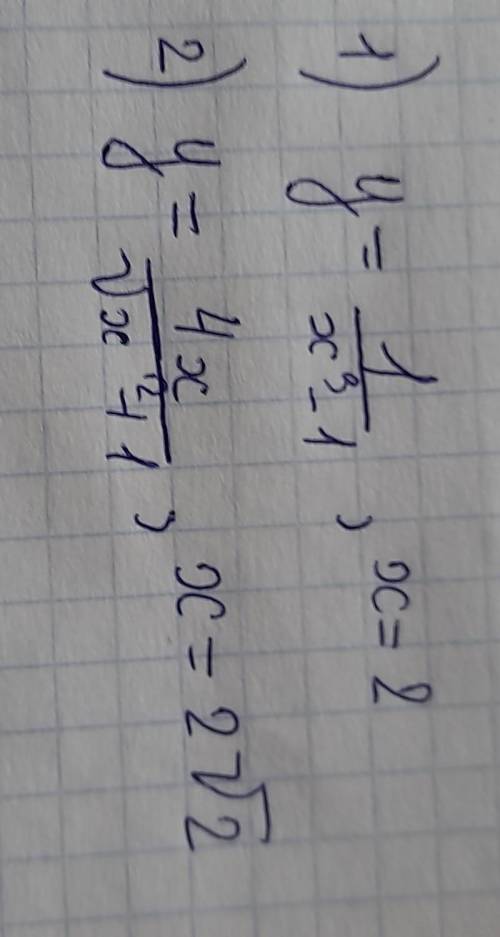 1) y = 1/(x³-1), x = 2
2) y = 4x/√(x²+1), x = 2√2